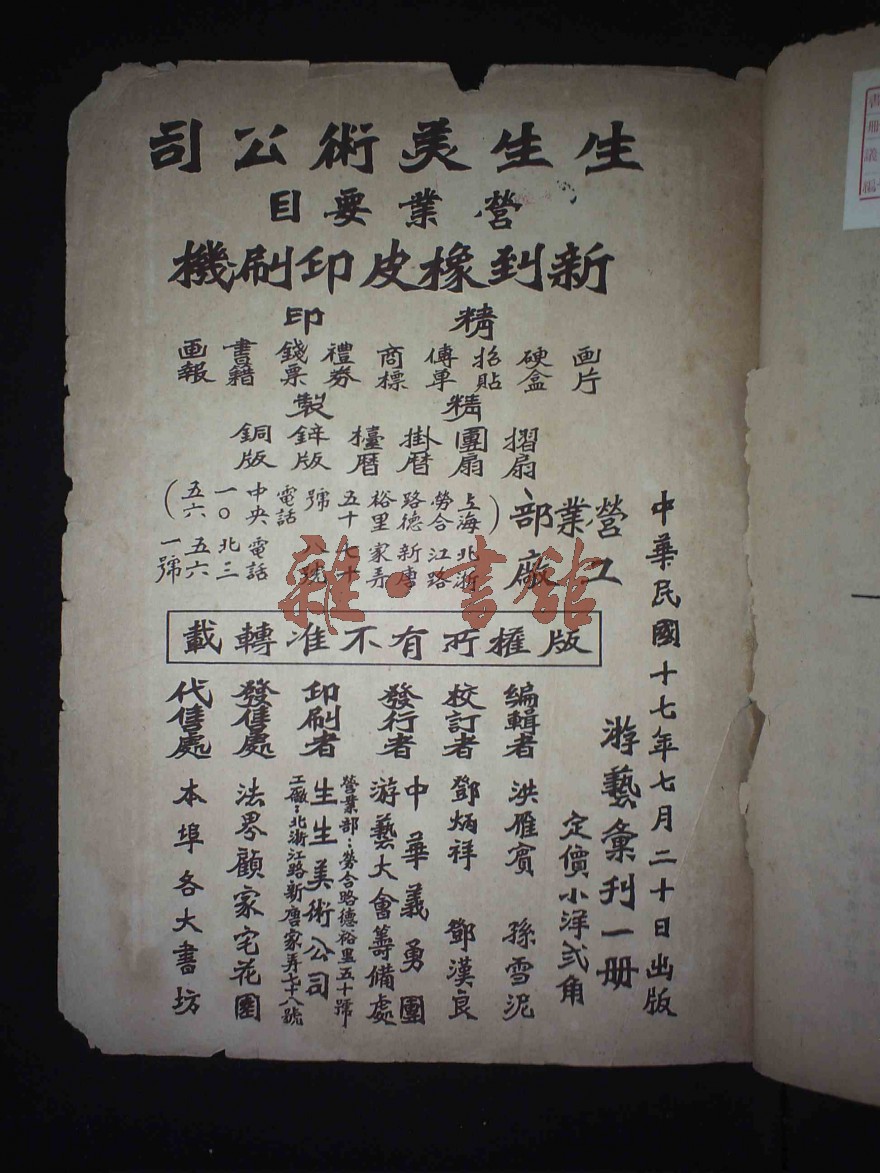 生生美術公司
營業要目
新到橡皮印刷機
精印
画片
硬盒
招貼
傳單
商標
禮券
錢票
書籍
画報
精製
摺扇
團扇
掛曆
檯曆
鋅版
銅版
營業部、(上海勞合路德裕里五十號 電話中央一〇五六)
工廠 北浙江路新唐家弄七十八號 電話北三五六一號
版權所有不准轉載
中華民國十七年七月二十日出版
游藝彙刊一册
定價小洋弍角
編輯者 洪雁賓 孫雪泥
校訂者 鄧炳祥 鄧漢良
發行者 中華義勇團
游藝大會籌備處
印刷者 生生美術公司
營業部：勞合路德裕里五十號
工廠：北浙江路新唐家弄七十八號
發售處 法界顧家宅花園
代售處 本埠各大書坊
雜·書館